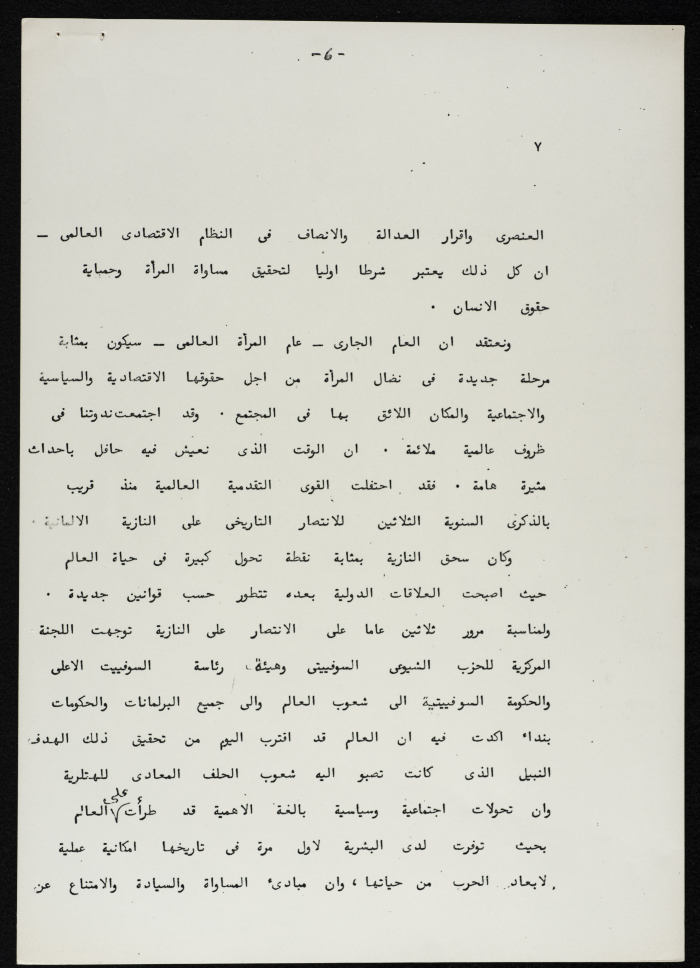 -6-
٧
العنصرى واقرار العدالة والانصاف فى النظام الاقتصادى العالمى ــ
ان كل ذلك يعتبر شرطا اوليا لتحقيق مساواة المرأة وحماية
حقوق الانسان ٠
ونعتقد ان العام الجارى ــ عام المرأة العالمى ــ سيكون بمثابة
مرحلة جديدة فى نضال المرأة من اجل حقوقها الاقتصادية والسياسية
والاجتماعية والمكان اللائق بها فى المجتمع ٠ وقد اجتمعت ندوتنا فى
ظروف عالمية ملائمة ٠ ان الوقت الذى نعيش فيه حافل باحداث
مثيرة هامة ٠ فقد احتفلت القوى التقدمية العالمية منذ قريب
بالذكرى السنوية الثلاثين للانتصار التاريخى على النازية الالمانية ٠
وكان سحق النازية بمثابة نقطة تحول كبيرة فى حياة العالم
حيث اصبحت العلاقات الدولية بعده تتطور حسب قوانين جديدة ٠
ولمناسبة مرور ثلاثين عاما على الانتصار على النازية توجهت اللجنة
المركزية للحزب الشيوعى السوفييتى وهيئة رئاسة السوفييت الاعلى
والحكومة السوفييتية الى شعوب العالم والى جميع البرلمانات والحكومات
بنداء اكدت فيه ان العالم قد اقترب اليوم من تحقيق ذلك الهدف
النبيل الذى كانت تصبو اليه شعوب الحلف المعادى للهتلرية
وان تحولات اجتماعية وسياسية بالغة الاهمية قد طرأت على العالم
بحيث توفرت لدى البشرية لاول مرة فى تاريخها امكانية عملية
لابعاد الحرب من حياتها ، وان مبادئ المساواة والسيادة والامتناع عن